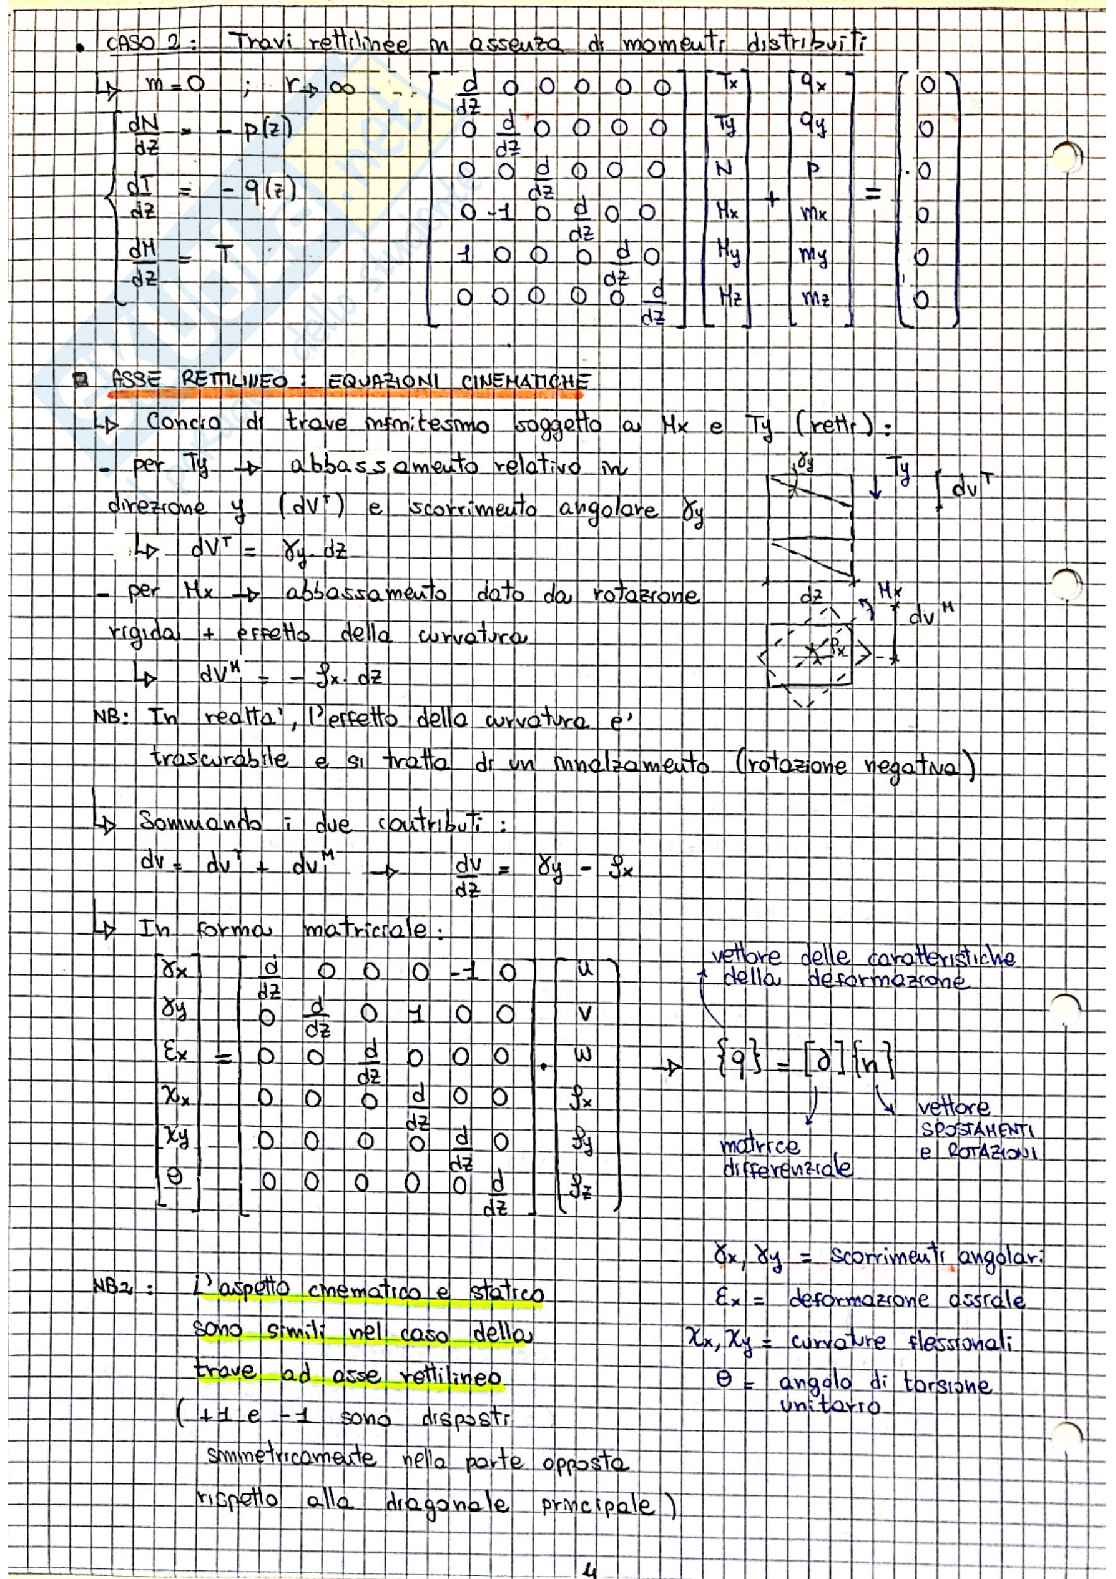 • CASO 2: Travi rettilinee in assenza di momenti distribuiti
↳ m=0 ; r→∞ ∴
dN/dz = - p(z)
dT/dz = - q(z)
dM/dz = T
[d/dz 0 0 0 0 0] [Tx] [qx] [0]
[0 d/dz 0 0 0 0] [Ty] [qy] [0]
[0 0 d/dz 0 0 0] [N] [p] [0]
[0 -1 0 d/dz 0 0] [Mx] + [mx] = [0]
[1 0 0 0 d/dz 0] [My] [my] [0]
[0 0 0 0 0 d/dz] [Mz] [mz] [0]
ASSE RETTILINEO: EQUAZIONI CINEMATICHE
↳ Concio di trave infinitesimo soggetto a Mx e Ty (rett.):
- per Ty → abbassamento relativo in
direzione y (dvᵀ) e scorrimento angolare γy
↳ dvᵀ = γy·dz
- per Mx → abbassamento dato da rotazione
rigida + effetto della curvatura
↳ dvᴹ = - φx·dz
γy Ty dvᵀ
dz Mx
dvᴹ
φx
NB: In realtà, l'effetto della curvatura è
trascurabile e si tratta di un innalzamento (rotazione negativa)
↳ Sommando i due contributi:
dv = dvᵀ + dvᴹ → dv/dz = γy - φx
↳ In forma matriciale:
[γx] [d/dz 0 0 0 -1 0] [u]
[γy] [0 d/dz 0 1 0 0] [v]
[εx] = [0 0 d/dz 0 0 0] · [w]
[χx] [0 0 0 d/dz 0 0] [φx]
[χy] [0 0 0 0 d/dz 0] [φy]
[θ] [0 0 0 0 0 d/dz] [φz]
vettore delle caratteristiche
della deformazione
→ {q} = [∂]{η}
vettore
SPOSTAMENTI
e ROTAZIONI
matrice
differenziale
γx, γy = scorrimenti angolari
εx = deformazione assiale
χx, χy = curvature flessionali
θ = angolo di torsione
unitario
NB2: L'aspetto cinematico e statico
sono simili nel caso della
trave ad asse rettilineo
(+1 e -1 sono disposti
simmetricamente nella parte opposta
rispetto alla diagonale principale)
4